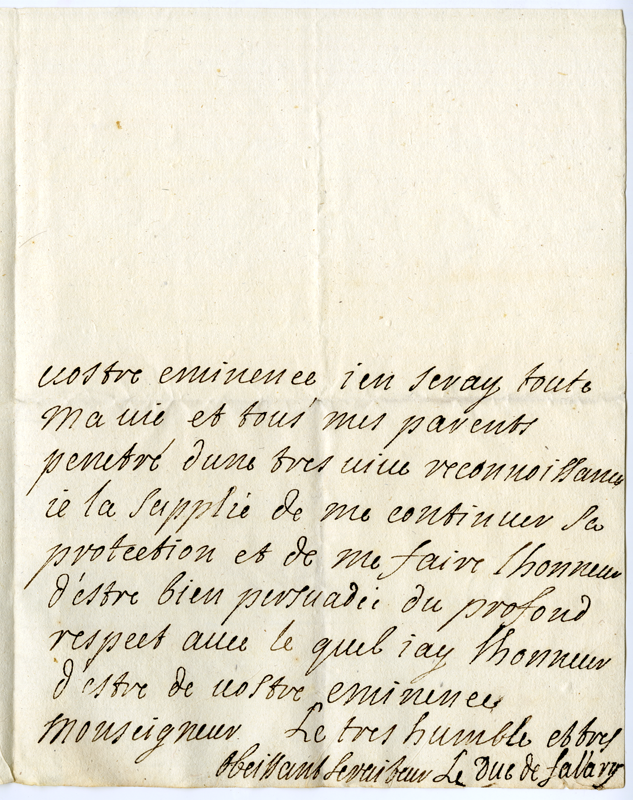 vostre eminence ien seray toute
ma vie et tous mes parents
penetré dune tres vive reconnoissance
ie la supplie de me continuer sa
protection et de me faire lhonneur
d'estre bien persuadée du profond
respect avec le quel iay lhonneur
d'estre de vostre eminence
Monseigneur Le tres humble et tres
obeissant serviteur Le Duc de